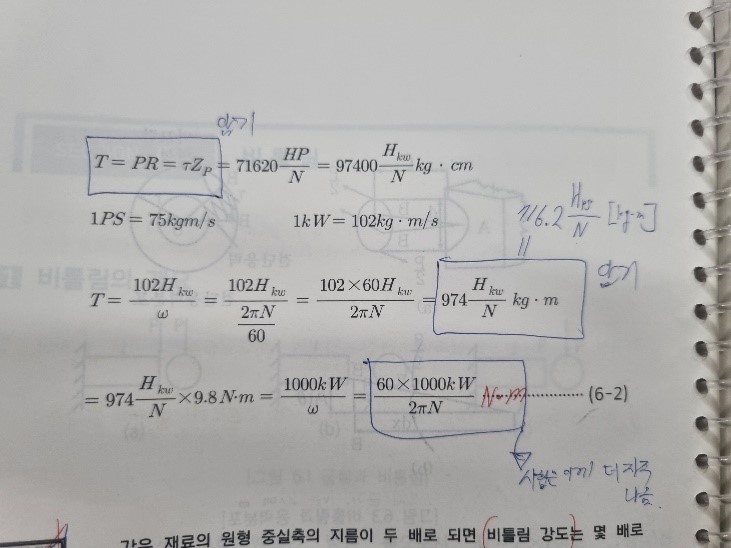 암기
T = PR = τZ_P = 71620 HP/N = 97400 H_kw/N kg · cm
716.2 H_PS/N [kg·m]
1PS = 75kgm/s 1kW = 102kg · m/s
||
암기
T = 102H_kw/ω = 102H_kw/(2πN/60) = 102×60H_kw/2πN = 974 H_kw/N kg · m
= 974 H_kw/N ×9.8N·m = 1000kW/ω = 60×1000kW/2πN N·m ·············· (6-2)
시험은 이게 더 자주
나옴.
같은 재료의 원형 중실축의 지름이 두 배로 되면 (비틀림 강도)는 몇 배로